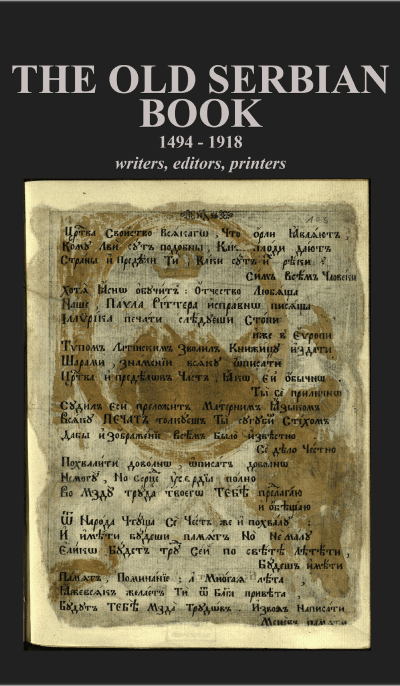 THE OLD SERBIAN
BOOK
1494 - 1918
writers, editors, printers
Цр҃тва Свойство Всѧкагѡ, Что орли Ꙗвлѧютъ,
Кому Лви сутъ подобны, Какъ люди даютъ
Страны и Предѣли Ти, Каки сутъ и рѣки
Симъ Всѣмъ Человѣки
Хотѧ Ꙗснѡ обучитъ: Отчество Любѧща
Наше, Паула Рiттера исправнѡ писѧща
печати слѣдуещи Стопи
иже в Европи
Тупомъ Латiнскимъ Зволилъ Книжицу издати
Шарами, знаменiи всѧку ѡписати
Цр҃тва и предѣлѡвъ Частъ, Ꙗкѡ Ей обычнѡ.
Ты се приличнѡ
Судилъ Еси преложитъ Матернимъ Ꙗзыкомъ
Всѧку ПЕЧАТЪ толкуешъ Ты сугуси Стiхомъ
Дабы изображенiе Всѣмъ Было извѣстно
Се дѣло Честно
Похвалити доволнѡ, ѡписатъ доволнѡ
Немогу, Но серце усердiѧ полно
Во Мзду труда твоегѡ ТЕБѢ прелагаю
и обѣщаю
Ѿ Народа Чтуща Се Честъ же и похвалу:
И имѣти будеши памѧтъ Но Немалу
Еликѡ Будетъ тру Сей по свѣтѣ Лѣтѣти,
Будешъ имѣти
Памѧтъ, Поминанiе; а Многаѧ лѣта
желаетъ Ти ѿ Бг҃а привѣта,
Будутъ ТЕБѢ Мзда Трудѡвъ. Изволъ Написати